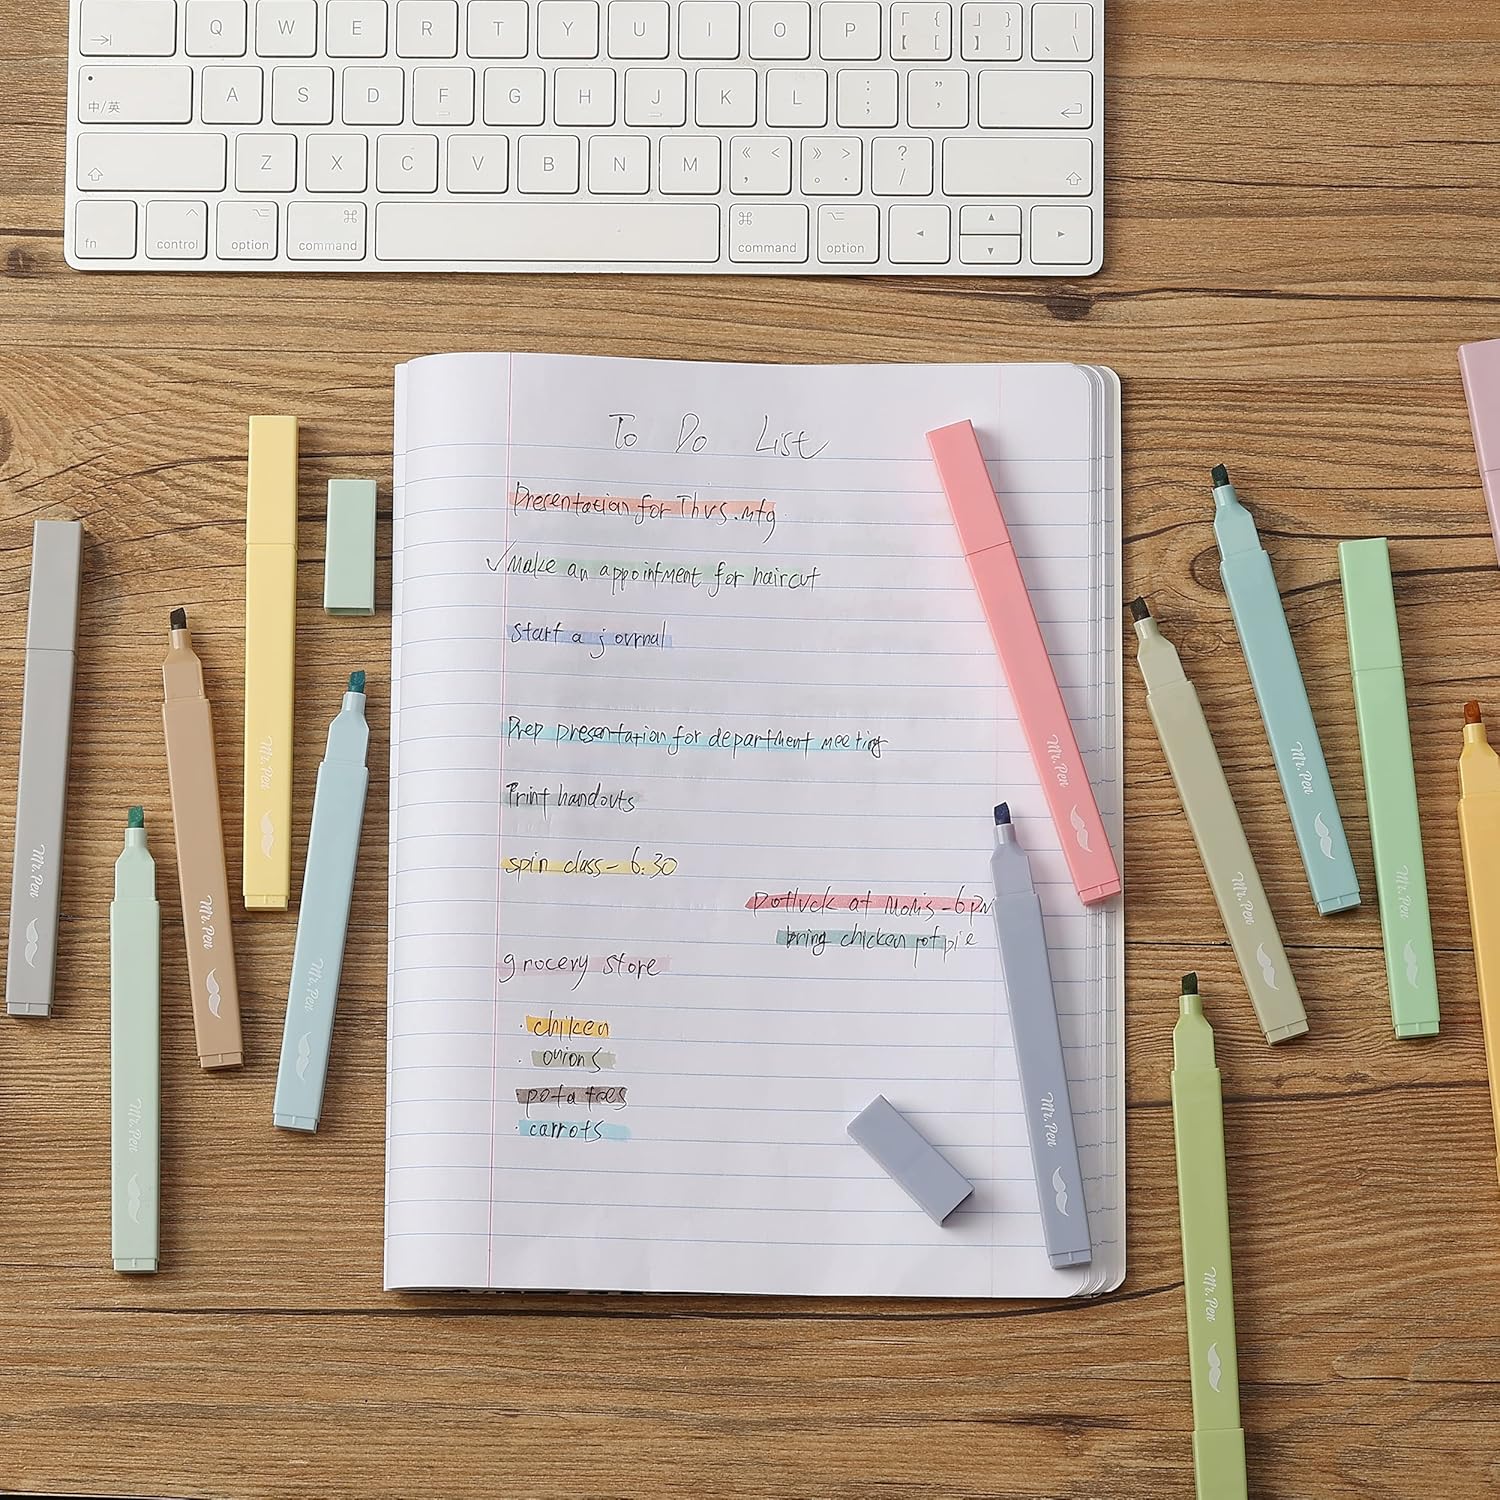 Q W E R T Y U I O P 「 { 【 [ 」 } 】 ] | 、 \
中/英 A S D F G H J K L : ; " '
Z X C V B N M 《 < , 》 > 。 . ? /
fn control option command command option
To Do List
Presentation for Thurs.mtg
✓Make an appointment for haircut
start a journal
Prep presentation for department meeting
Print handouts
spin class - 6:30
potluck at Mom's - 6pm
bring chicken pot pie
grocery store
· chiken
· onions
· potatoes
· carrots
Mr. Pen
Mr. Pen
Mr. Pen
Mr. Pen
Mr. Pen
Mr. Pen
Mr. Pen
Mr. Pen
Mr. Pen
Mr. Pen
Mr. Pen